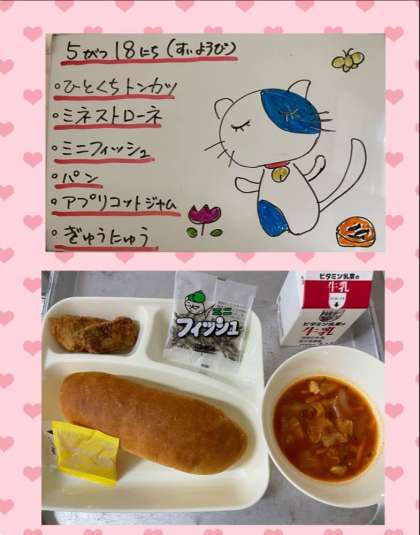 5がつ18にち(すいようび)
・ひとくちトンカツ
・ミネストローネ
・ミニフィッシュ
・パン
・アプリコットジャム
・ぎゅうにゅう
ミニ
フィッシュ
ビタミン乳業の
牛乳
ビタミン乳業の
牛乳